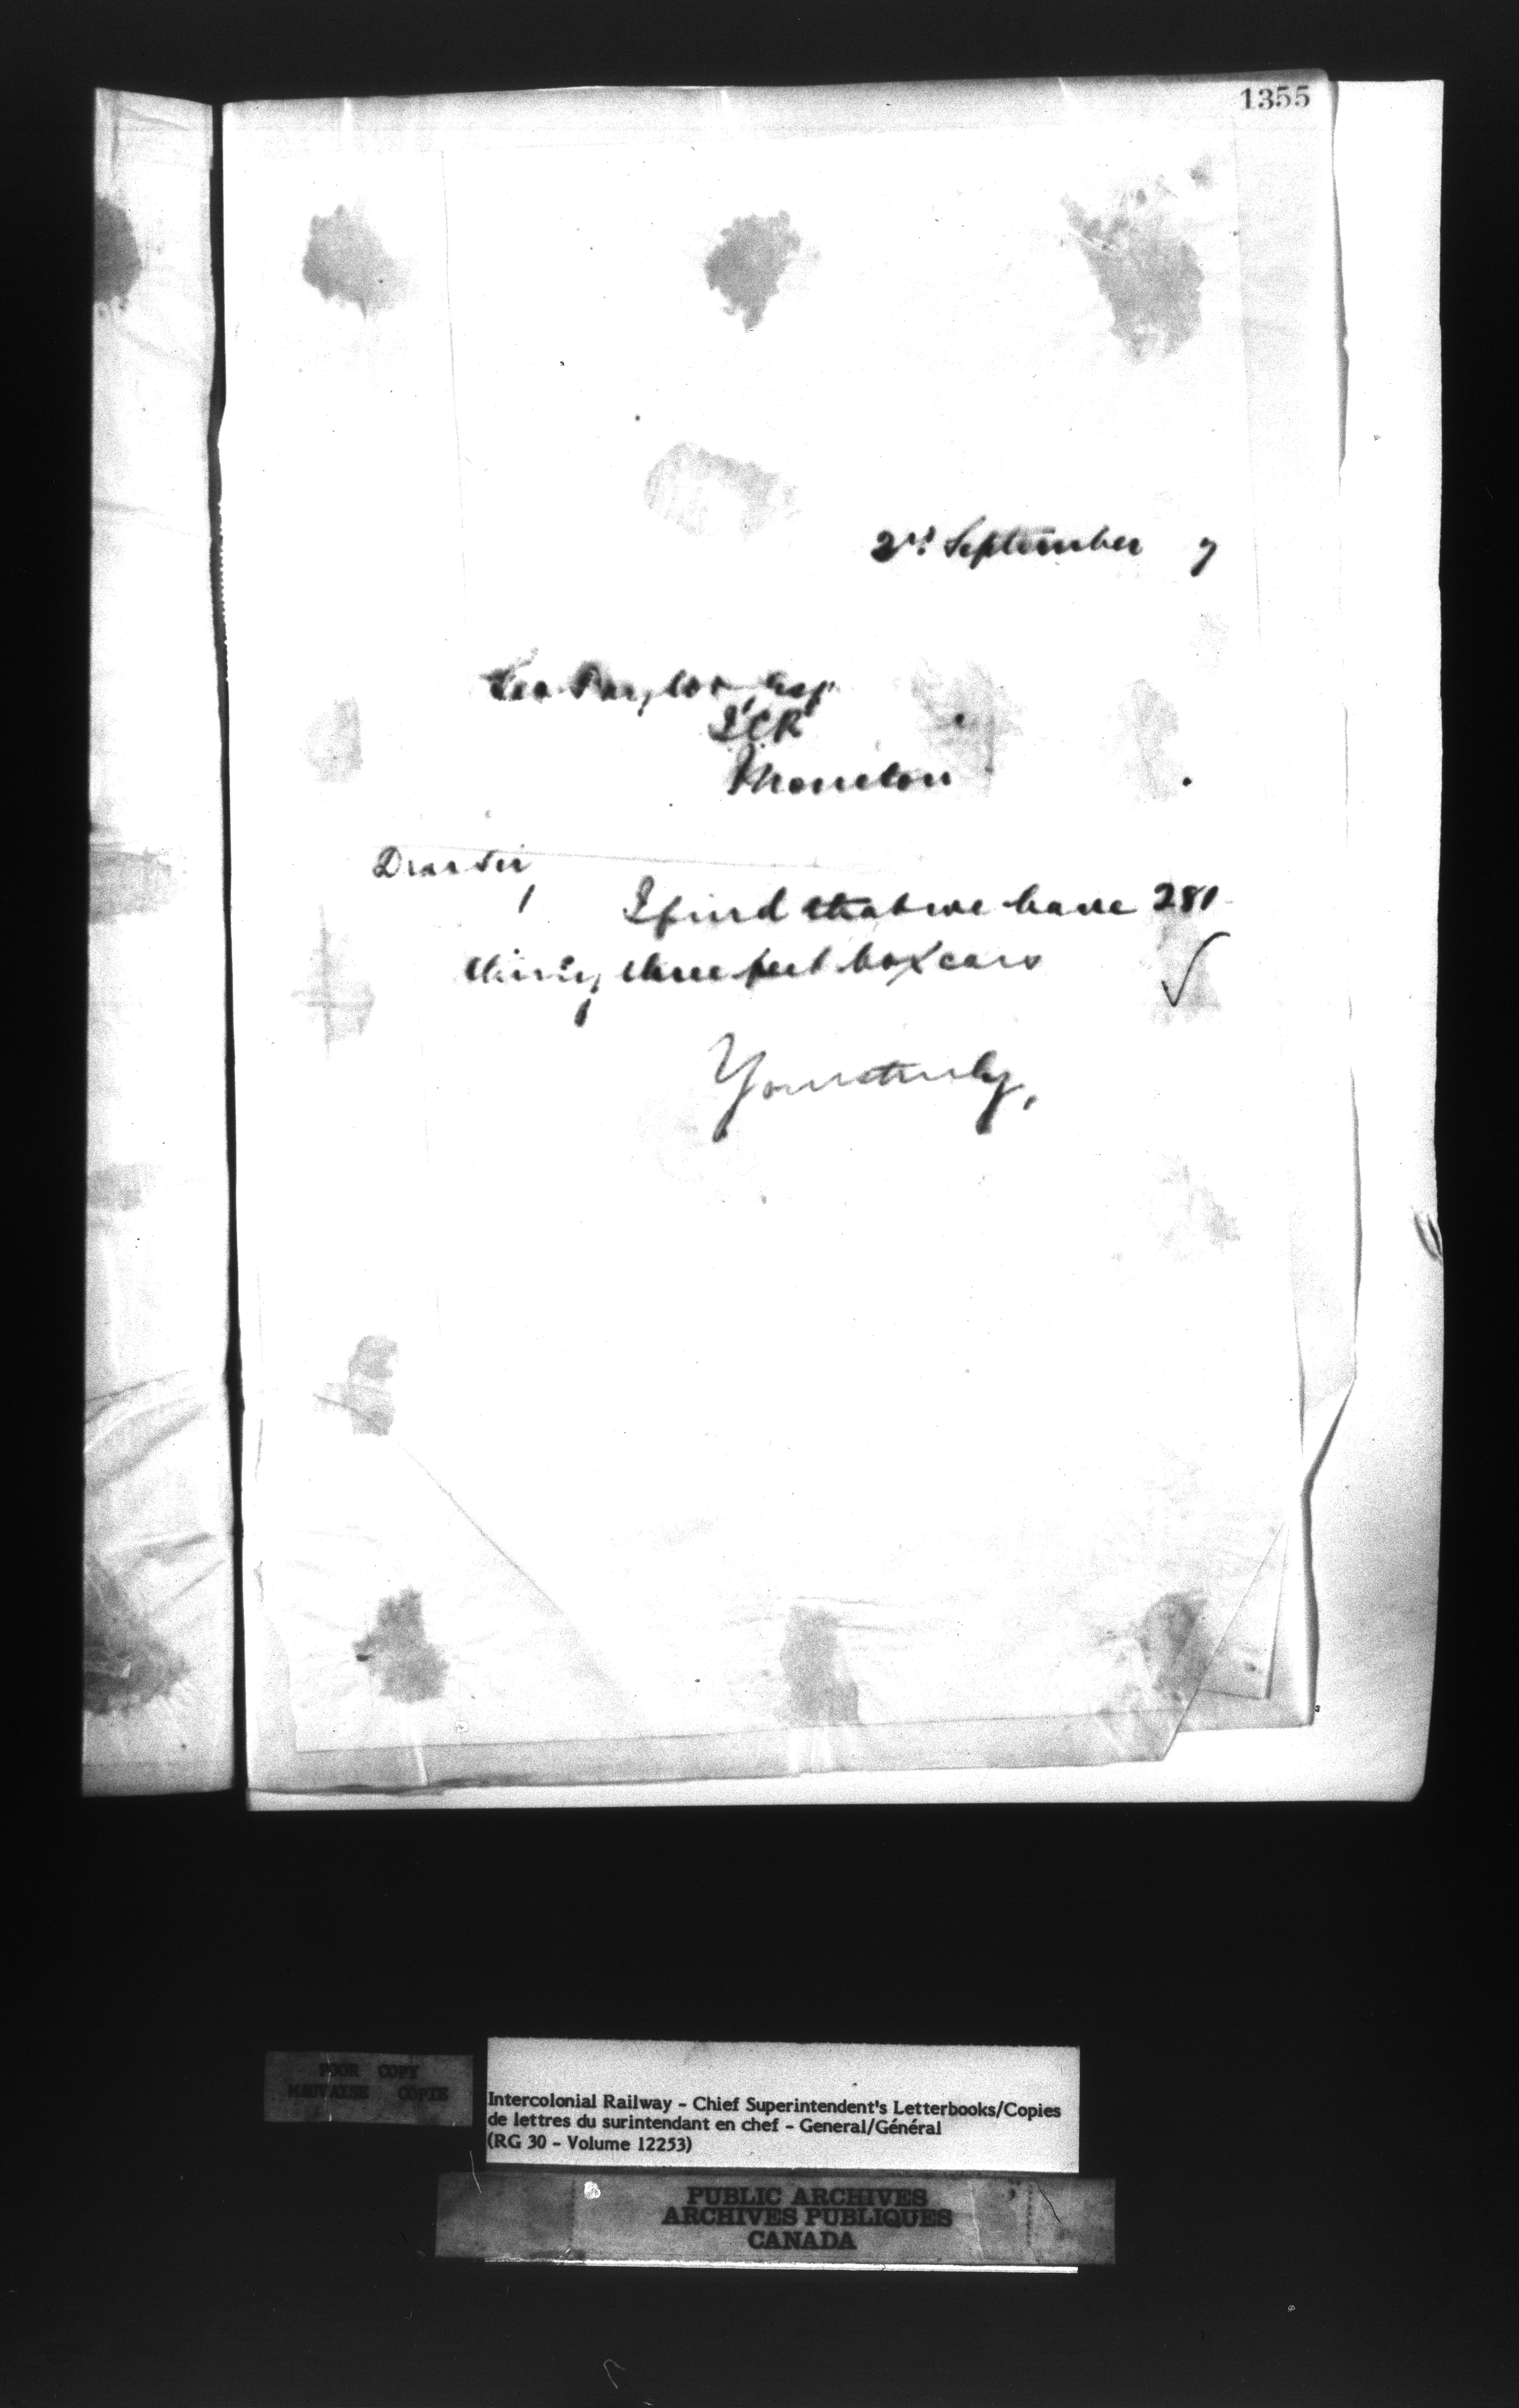 1355
2nd September 7
Geo Taylor, Esq
ICR
Moncton
Dear Sir,
I find that we have 281
thirty three feet box cars
Yours truly,
POOR COPY
MAUVAISE COPIE
Intercolonial Railway - Chief Superintendent's Letterbooks/Copies
de lettres du surintendant en chef - General/Général
(RG 30 - Volume 12253)
PUBLIC ARCHIVES
ARCHIVES PUBLIQUES
CANADA